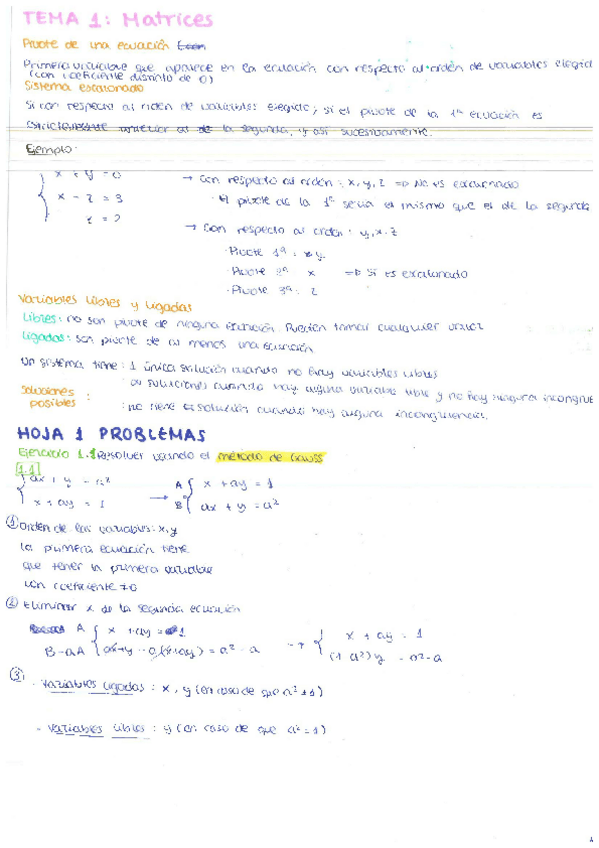 TEMA 1: Matrices
Pivote de una ecuación
Primera variable que aparece en la ecuación con respecto al orden de variables elegid
(con coeficiente distinto de 0)
Sistema escalonado
Si con respecto al orden de variables elegido, si el pivote de la 1ª ecuación es
estrictamente anterior al de la segunda, y así sucesivamente.
Ejemplo:
x + y = 0 → con respecto al orden: x, y, z => No es escalonado
x - z = 3 · El pivote de la 1ª sería el mismo que el de la segunda
z = 2 → con respecto al orden: y, x, z
· Pivote 1ª: y
· Pivote 2ª x => Si es escalonado
· Pivote 3ª: z
Variables libres y ligadas
Libres: no son pivote de ninguna ecuación. Pueden tomar cualquier valor
Ligadas: son pivote de al menos una ecuación
Un sistema tiene: 1 única solución cuando no hay variables libres
Soluciones posibles: ∞ soluciones cuando hay alguna variable libre y no hay ninguna incongrue
: no tiene solución cuando hay alguna incongruencia.
HOJA 1 PROBLEMAS
Ejercicio 1.1 Resolver usando el método de Gauss
1.1
ax + y = a² A x + ay = 1
x + ay = 1 → B ax + y = a²
① Orden de las variables: x, y
la primera ecuación tiene
que tener la primera variable
con coeficiente ≠ 0
② Eliminar x de la segunda ecuación
A x + ay = 1 → x + ay = 1
B-aA ax+y - a(x+ay) = a² - a (1-a²)y = a²-a
③ · Variables ligadas: x, y (en caso de que a² ≠ 1)
- Variables libres: y (en caso de que a² = 1)